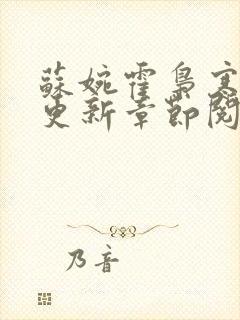 蘇婉霍梟寒
更新章節閱
乃音